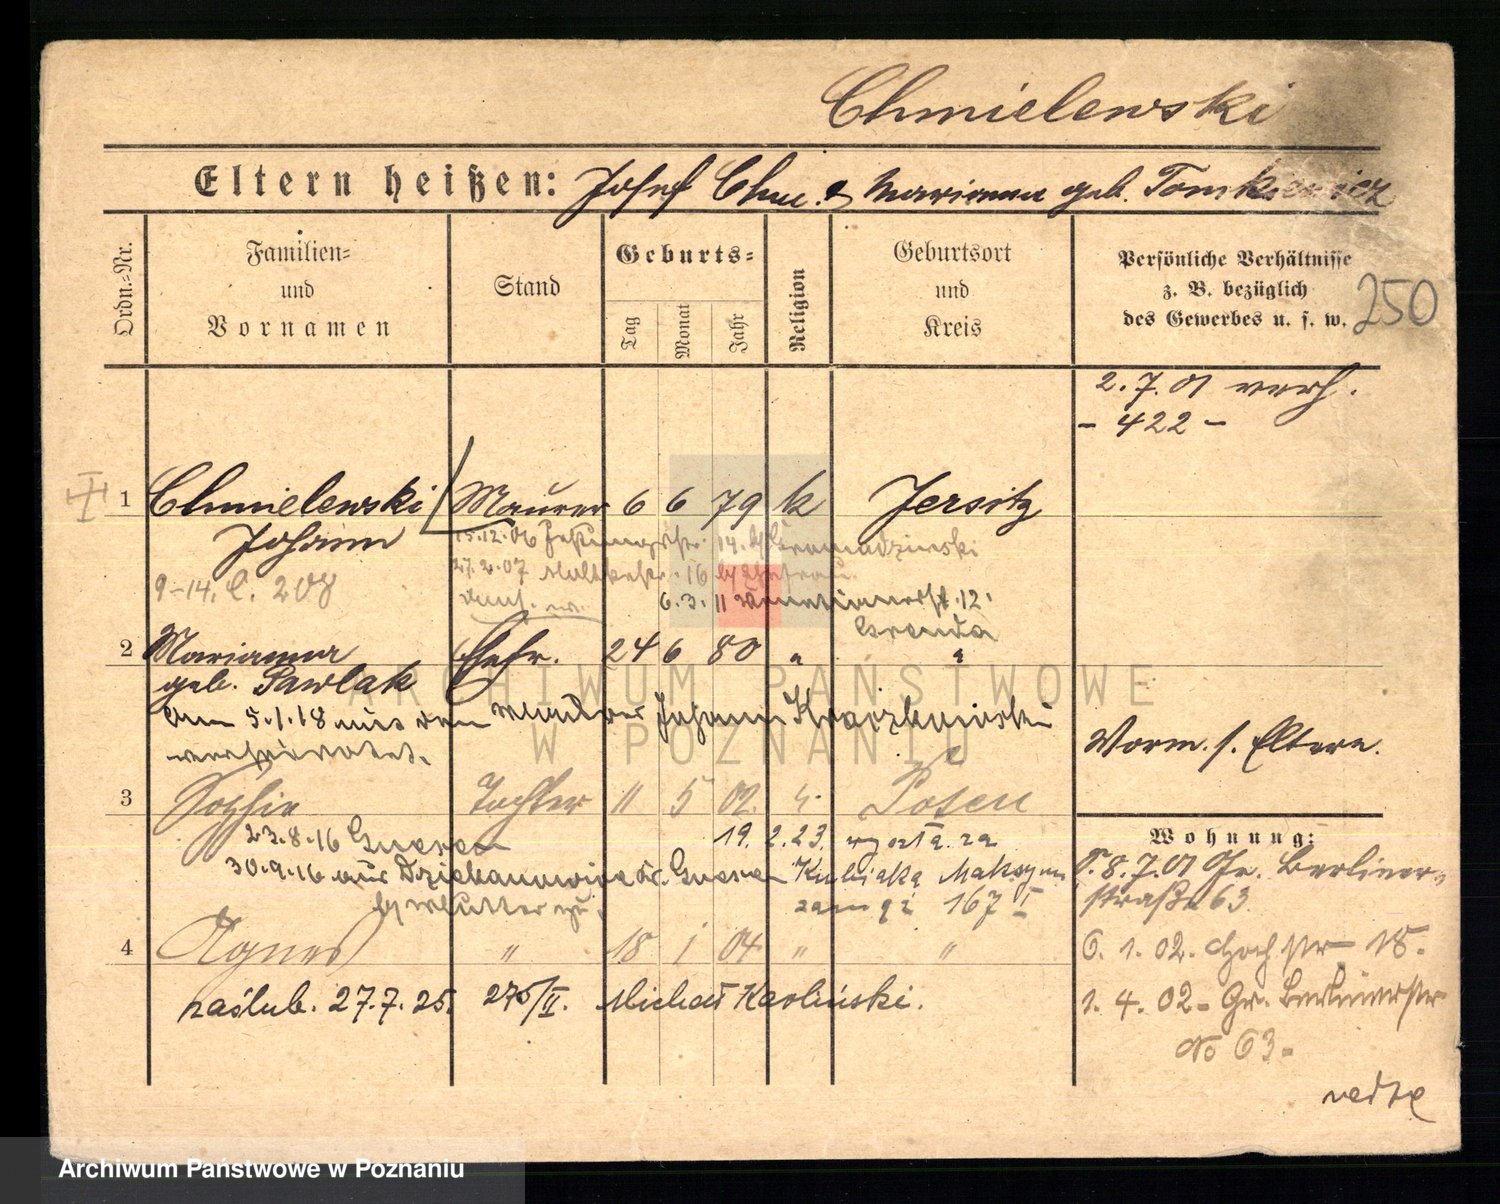 Chmielewski
Eltern heißen: Josef Chm. & Marianna geb. Tomkiewicz
Ordn.-Nr.
Familien-
und
Vornamen
Stand
Geburts-
Tag
Monat
Jahr
Religion
Geburtsort
und
Kreis
Persönliche Verhältnisse
z. B. bezüglich
des Gewerbes u. s. w.
250
2. 7. 01 verh.
- 422 -
1 Chmielewski Maurer 6 6 79 k Jersitz
Johann
15.12.06 14.
9-14. C. 208
27.2.07 16
6.3.11 12.
2 Marianna Ehefr. 24 6 80 " "
geb. Pawlak
Am 5.1.18 mit dem Johann
verheiratet.
Vorm. s. Eltern.
3 Sophie Tochter 11 5 02. " Posen
23.8.16 Gnesen 19. 2. 23. za
30.9.16 aus Dziekanowice Kr. Gnesen Kubiaka Maksym
zam gź 167 I
Wohnung:
8.7.01 Gr. Berliner-
straße 63
4 Agnes " 18 1 04 " "
6. 1. 02. Hochstr. 18.
zaślub. 27.7.25. 275/II. Michał Karliński.
1. 4. 02 - Gr. Berlinerstr
No 63 -
ARCHIWUM PAŃSTWOWE
W POZNANIU
Archiwum Państwowe w Poznaniu